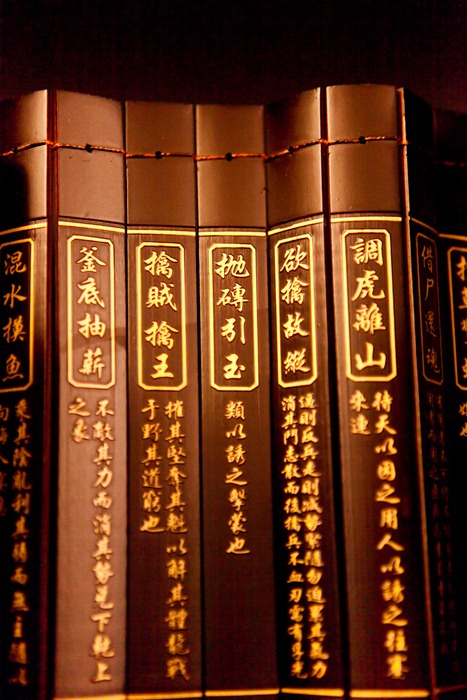 借尸還魂
調虎離山
待天以困之用人以誘之往蹇
來連
欲擒故縱
逼則反兵走則減勢緊隨勿迫累其氣力
消其鬥志散而後擒兵不血刃需有孚光
抛磚引玉
類以誘之擊蒙也
擒賊擒王
摧其堅奪其魁以解其體龍戰
于野其道窮也
釜底抽薪
不敵其力而消其勢兌下乾上
之象
混水摸魚
乘其陰亂利其弱而無主隨以
向晦入宴